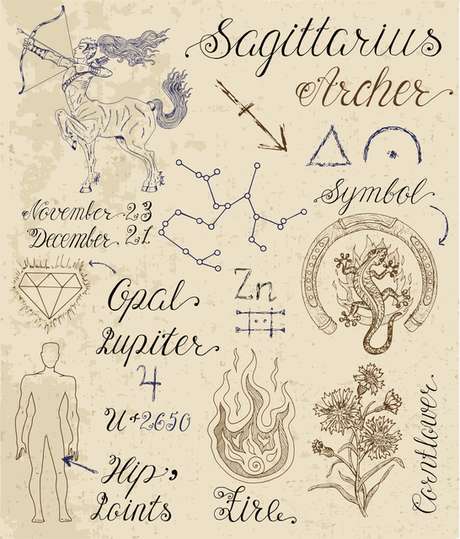 Sagittarius
Archer
Symbol
November 23
December 21
Opal
Jupiter
Zn
♃
U+2650
Hip,
Joints
Fire
Cornflower